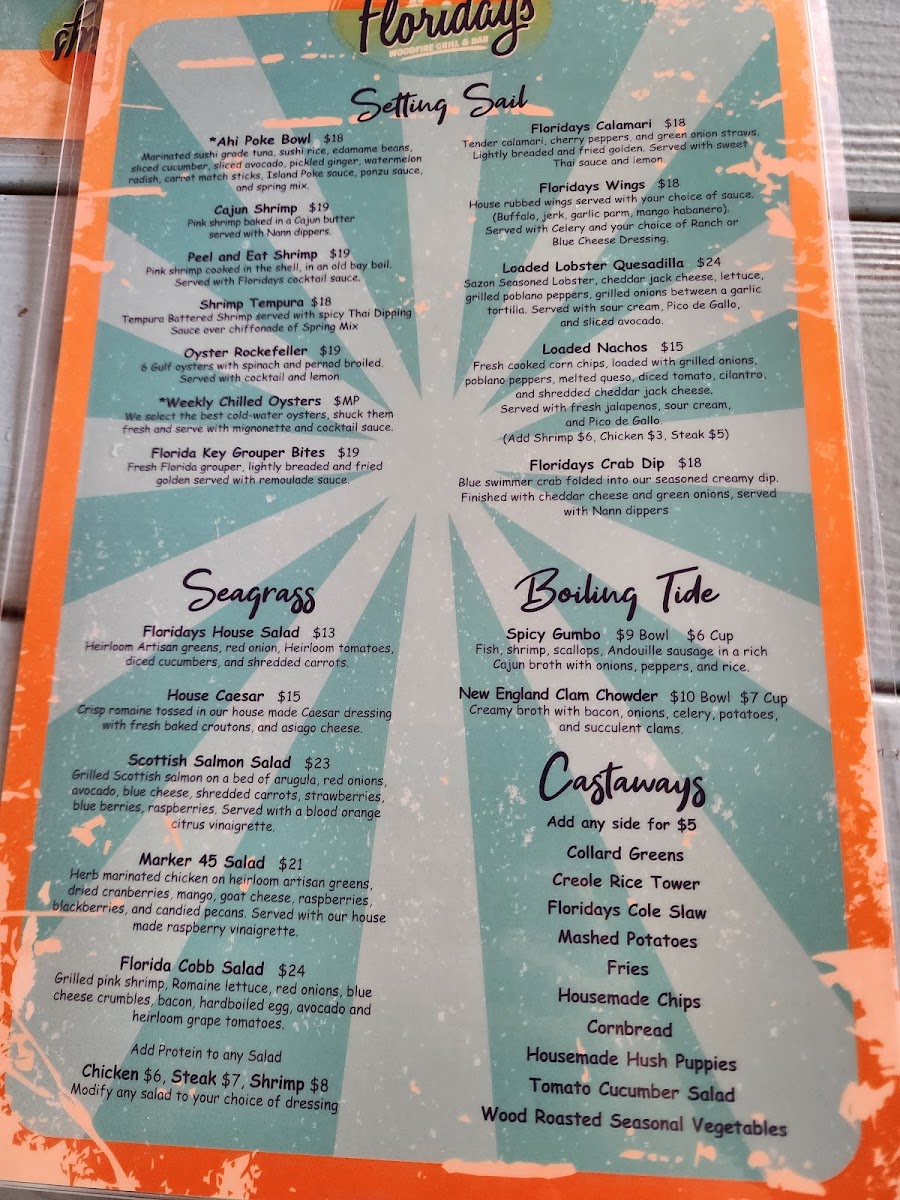 Floridays
WOODFIRE GRILL & BAR
Setting Sail
*Ahi Poke Bowl $18
Marinated sushi grade tuna, sushi rice, edamame beans,
sliced cucumber, sliced avocado, pickled ginger, watermelon
radish, carrot match sticks, Island Poke sauce, ponzu sauce,
and spring mix.
Cajun Shrimp $19
Pink shrimp baked in a Cajun butter
served with Nann dippers.
Peel and Eat Shrimp $19
Pink shrimp cooked in the shell, in an old bay boil.
Served with Floridays cocktail sauce.
Shrimp Tempura $18
Tempura Battered Shrimp served with spicy Thai Dipping
Sauce over chiffonade of Spring Mix
Oyster Rockefeller $19
6 Gulf oysters with spinach and pernod broiled.
Served with cocktail and lemon.
*Weekly Chilled Oysters $MP
We select the best cold-water oysters, shuck them
fresh and serve with mignonette and cocktail sauce.
Florida Key Grouper Bites $19
Fresh Florida grouper, lightly breaded and fried
golden served with remoulade sauce.
Floridays Calamari $18
Tender calamari, cherry peppers, and green onion straws.
Lightly breaded and fried golden. Served with sweet
Thai sauce and lemon.
Floridays Wings $18
House rubbed wings served with your choice of sauce.
(Buffalo, jerk, garlic parm, mango habanero).
Served with Celery and your choice of Ranch or
Blue Cheese Dressing.
Loaded Lobster Quesadilla $24
Sazon Seasoned Lobster, cheddar jack cheese, lettuce,
grilled poblano peppers, grilled onions between a garlic
tortilla. Served with sour cream, Pico de Gallo,
and sliced avocado.
Loaded Nachos $15
Fresh cooked corn chips, loaded with grilled onions,
poblano peppers, melted queso, diced tomato, cilantro,
and shredded cheddar jack cheese.
Served with fresh jalapenos, sour cream,
and Pico de Gallo.
(Add Shrimp $6, Chicken $3, Steak $5)
Floridays Crab Dip $18
Blue swimmer crab folded into our seasoned creamy dip.
Finished with cheddar cheese and green onions, served
with Nann dippers
Seagrass
Floridays House Salad $13
Heirloom Artisan greens, red onion, Heirloom tomatoes,
diced cucumbers, and shredded carrots.
House Caesar $15
Crisp romaine tossed in our house made Caesar dressing
with fresh baked croutons, and asiago cheese.
Scottish Salmon Salad $23
Grilled Scottish salmon on a bed of arugula, red onions,
avocado, blue cheese, shredded carrots, strawberries,
blue berries, raspberries. Served with a blood orange
citrus vinaigrette.
Marker 45 Salad $21
Herb marinated chicken on heirloom artisan greens,
dried cranberries, mango, goat cheese, raspberries,
blackberries, and candied pecans. Served with our house
made raspberry vinaigrette.
Florida Cobb Salad $24
Grilled pink shrimp, Romaine lettuce, red onions, blue
cheese crumbles, bacon, hardboiled egg, avocado and
heirloom grape tomatoes.
Add Protein to any Salad
Chicken $6, Steak $7, Shrimp $8
Modify any salad to your choice of dressing
Boiling Tide
Spicy Gumbo $9 Bowl $6 Cup
Fish, shrimp, scallops, Andouille sausage in a rich
Cajun broth with onions, peppers, and rice.
New England Clam Chowder $10 Bowl $7 Cup
Creamy broth with bacon, onions, celery, potatoes,
and succulent clams.
Castaways
Add any side for $5
Collard Greens
Creole Rice Tower
Floridays Cole Slaw
Mashed Potatoes
Fries
Housemade Chips
Cornbread
Housemade Hush Puppies
Tomato Cucumber Salad
Wood Roasted Seasonal Vegetables